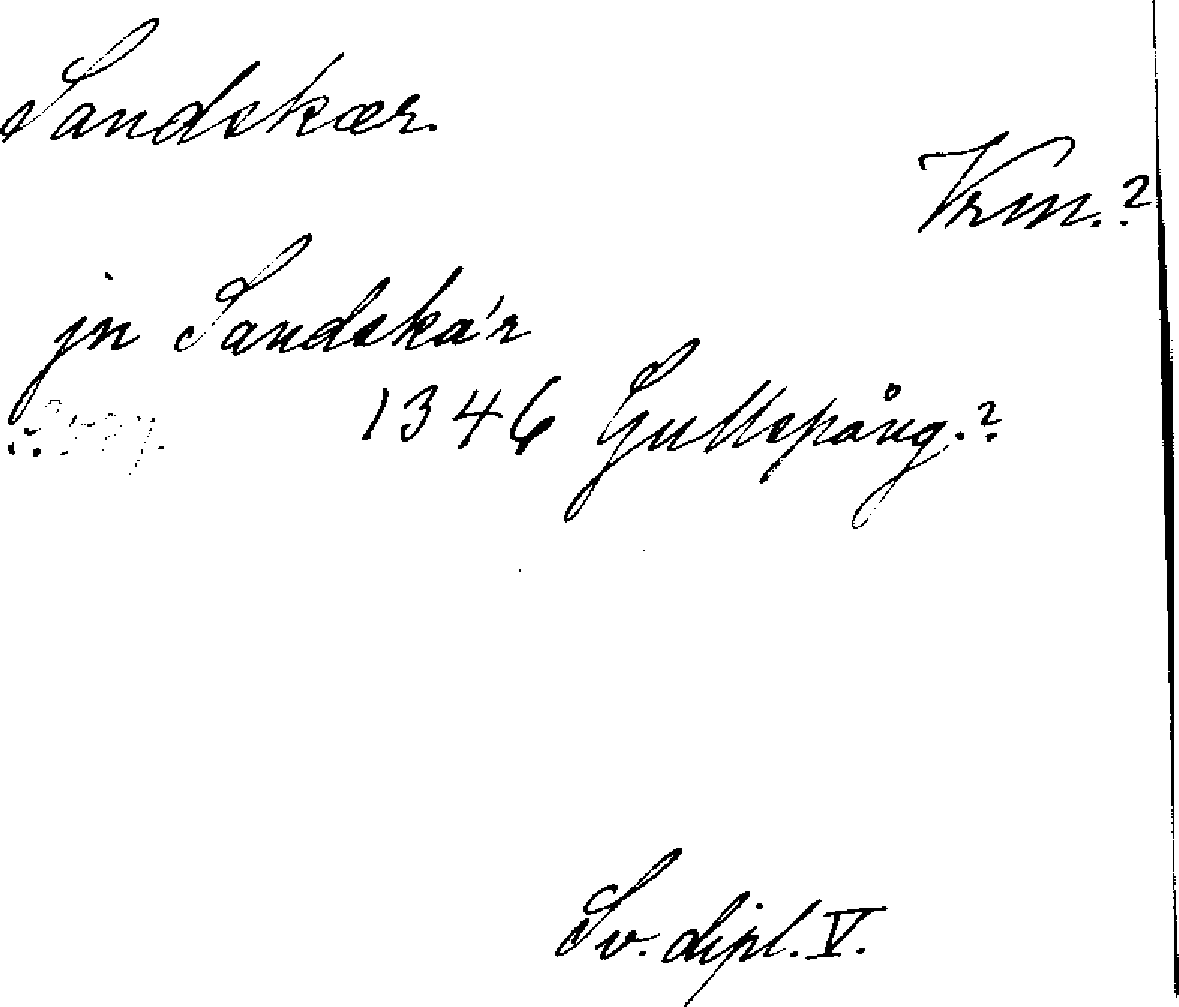 Sandskær.
Vrm.?
jn Sandska'r
1346 Gullspång.?
Sv. dipl. V.